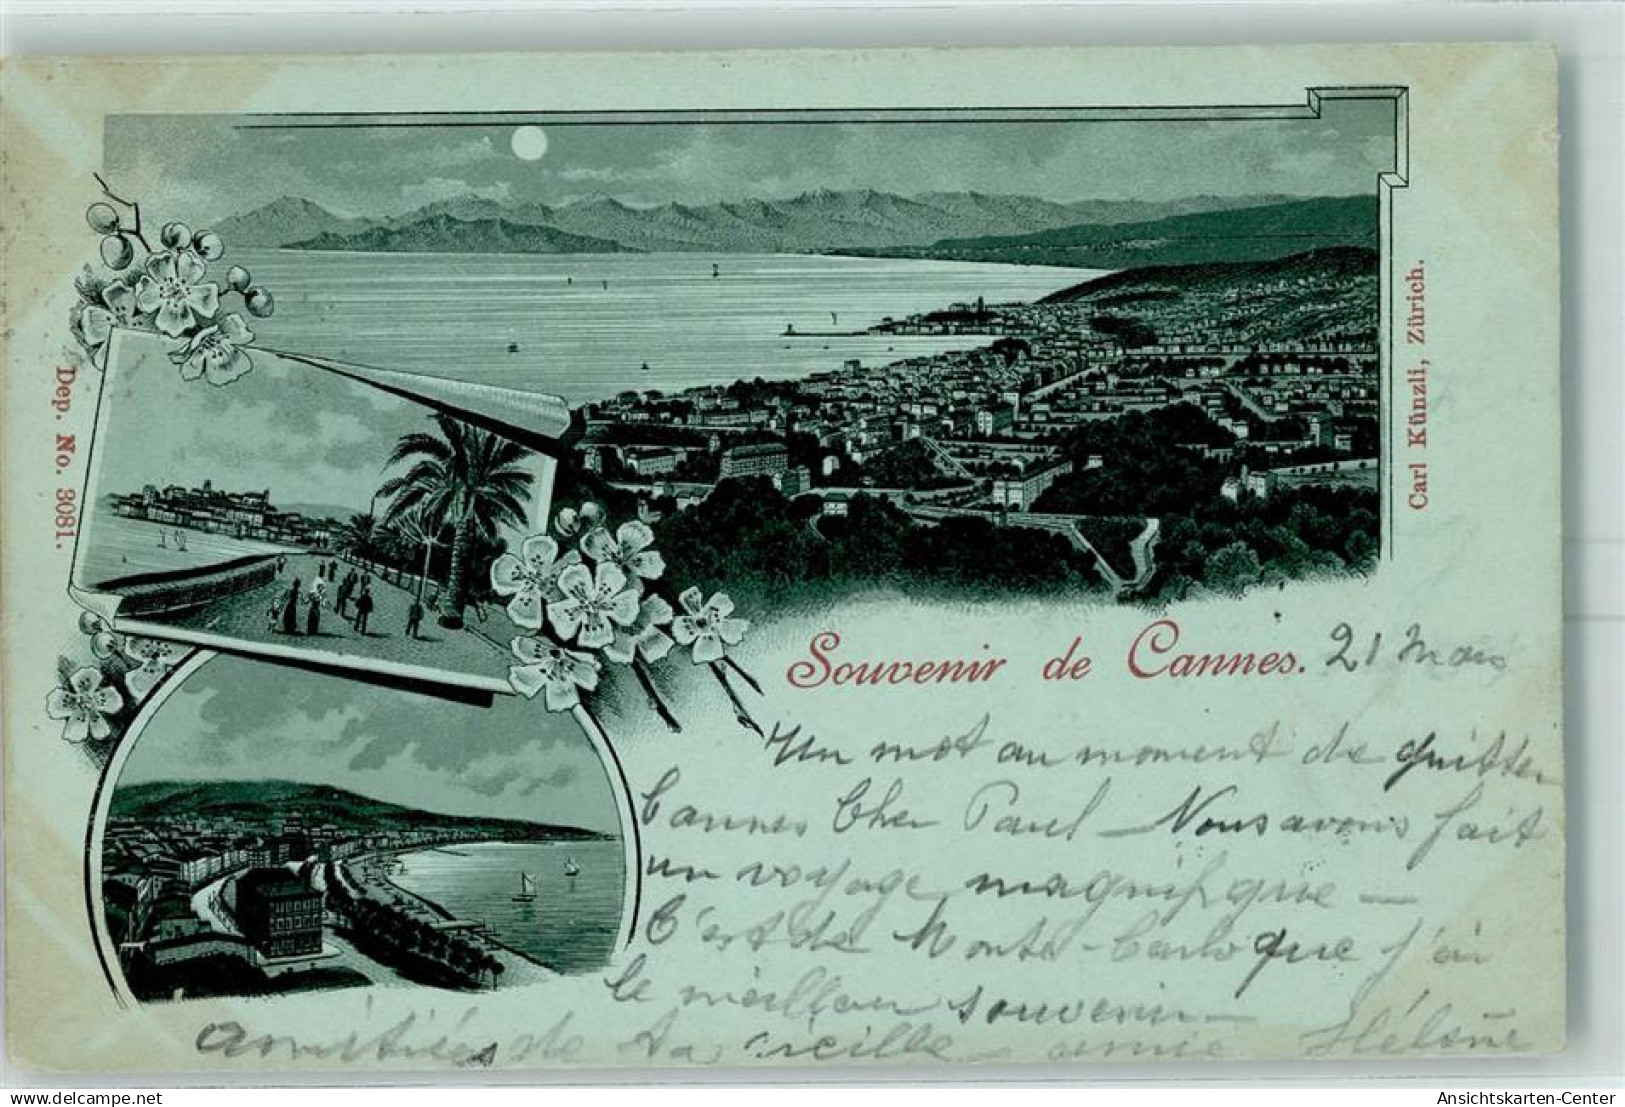 Dep. No. 3081.
Carl Künzli, Zürich.
Souvenir de Cannes. 21 Mars
Un mot au moment de quitter
Cannes Cher Paul - Nous avons fait
un voyage magnifique -
C'est de Monte-Carlo que j'ai
le meilleur souvenir -
Amitiés de ta vieille amie Hélène
delcampe.net
Ansichtskarten-Center